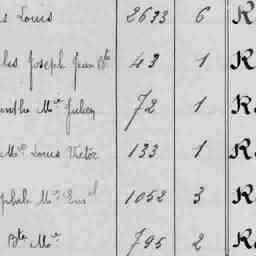 s Louis 2633 6 R
les Joseph Jean Bte 43 1 R
Mie Julien 72 1 R
Mie Louis Victor 133 1 R
Mie Emel 1052 3 R
Bte Mie 795 2 R